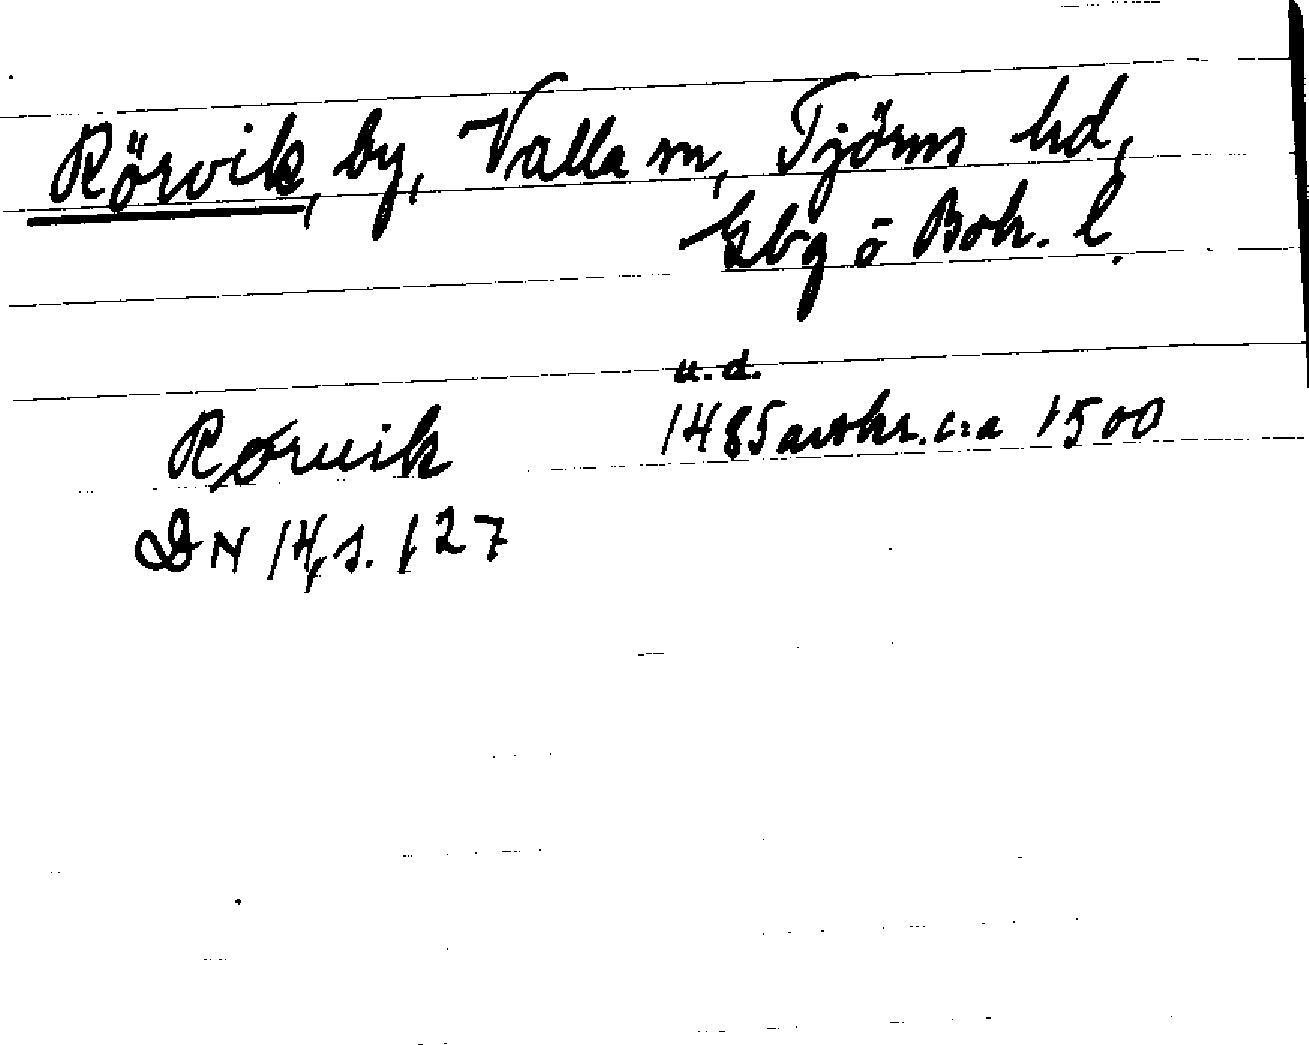 Rörvik, by, Valla sn, Tjörns hd,
Gbg o Boh. l.
u. d.
Røruik 1485 avskr. c:a 1500
DN 14, s. 127